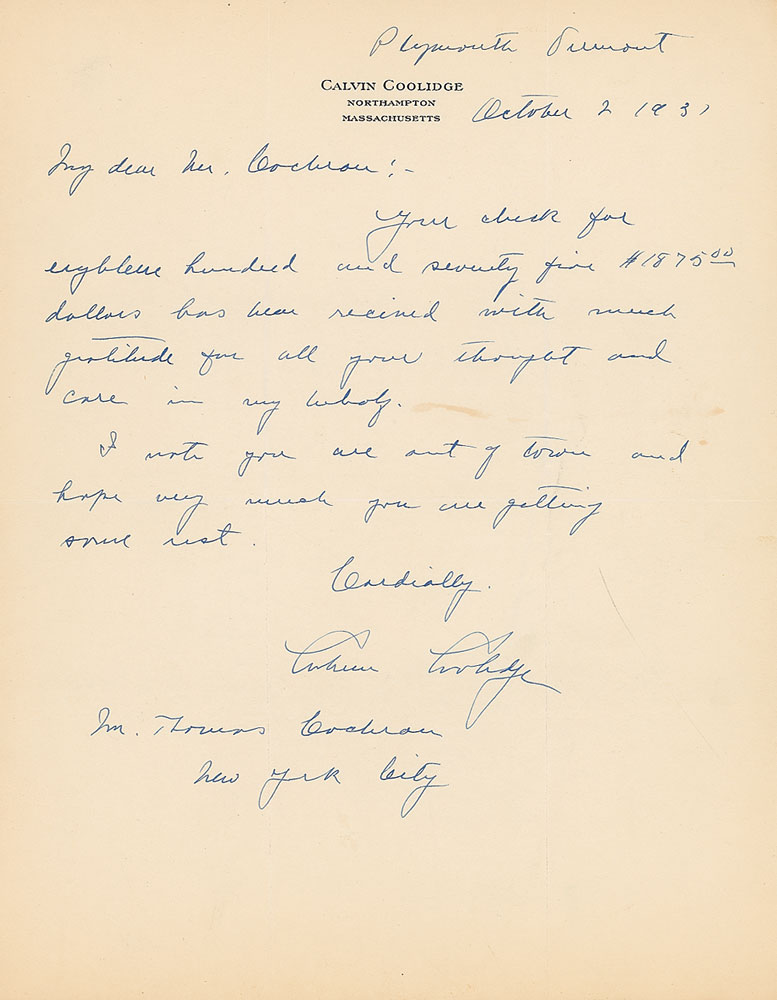 Plymouth Vermont
CALVIN COOLIDGE
NORTHAMPTON
MASSACHUSETTS
October 2 1931
My dear Mr. Cochran:-
Your check for
eighteen hundred and seventy five $1875.00
dollars has been received with much
gratitude for all your thought and
care in my behalf.
I note you are out of town and
hope very much you are getting
some rest.
Cordially.
Calvin Coolidge
Mr. Thomas Cochran
New York City